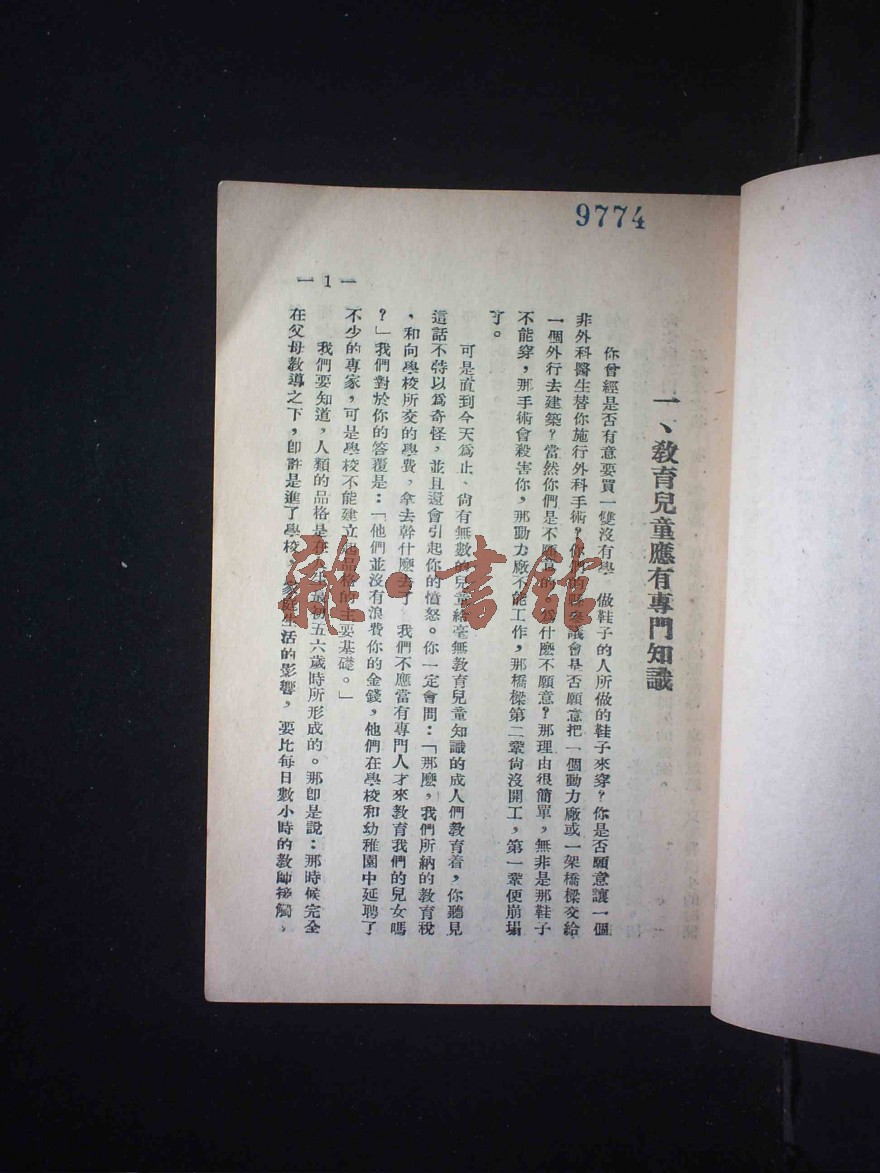 9774
一、教育兒童應有專門知識
你曾經是否有意要買一雙沒有學 做鞋子的人所做的鞋子來穿？你是否願意讓一個
非外科醫生替你施行外科手術？你們的縣參議會是否願意把一個動力廠或一架橋樑交給
一個外行去建築？當然你們是不願意的。爲什麽不願意？那理由很簡單，無非是那鞋子
不能穿，那手術會殺害你，那動力廠不能工作，那橋樑第二鞏尙沒開工，第一鞏便崩塌
了。
可是直到今天爲止、尙有無數的兒童給毫無教育兒童知識的成人們教育着，你聽見
這話不特以爲奇怪，並且還會引起你的憤怒。你一定會問：「那麽，我們所納的教育稅
，和向學校所交的學費，拿去幹什麽去了 我們不應當有專門人才來教育我們的兒女嗎
？」我們對於你的答覆是：「他們並沒有浪費你的金錢，他們在學校和幼稚園中延聘了
不少的專家，可是學校不能建立起品格的主要基礎。」
我們要知道，人類的品格是在 最初五六歲時所形成的。那卽是說：那時候完全
在父母教導之下，卽許是進了學校，家庭生活的影響，要比每日數小時的教師接觸，
一 1 一
雜·書館